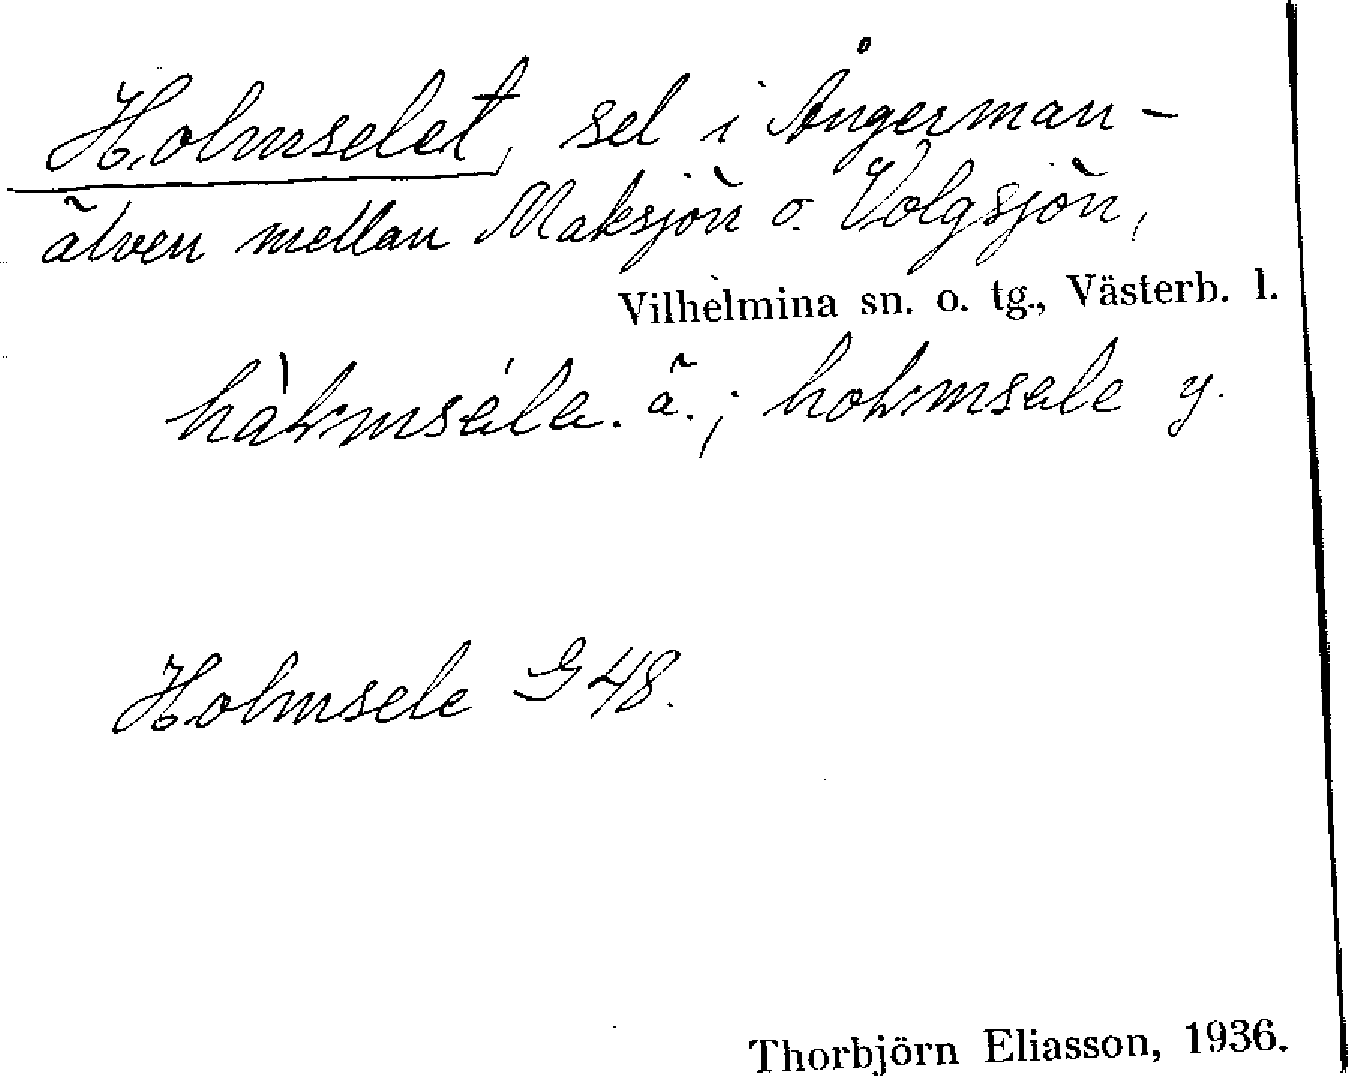 Holmselet, sel i Ångerman-
älven mellan Maksjön o. Volgsjön,
Vilhelmina sn. o. tg., Västerb. l.
ä.; y.
Holmsele G 48.
Thorbjörn Eliasson, 1936.